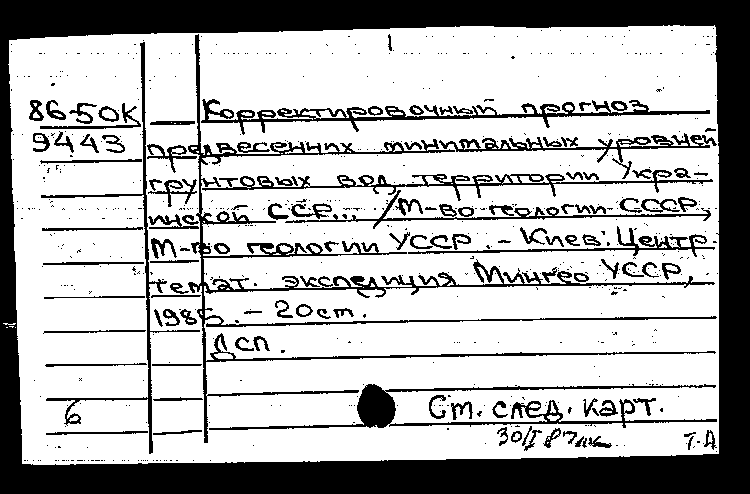 86-50К Корректировочный прогноз
9443 предвесенних минимальных уровней
грунтовых вод территории Укра-
инской ССР... /М-во геологии СССР,
М-во геологии УССР. - Киев: Центр.
темат. экспедиция Мингео УССР,
1985. - 20 см.
ДСП.
6 См. след. карт.
30/I 87 Т.А